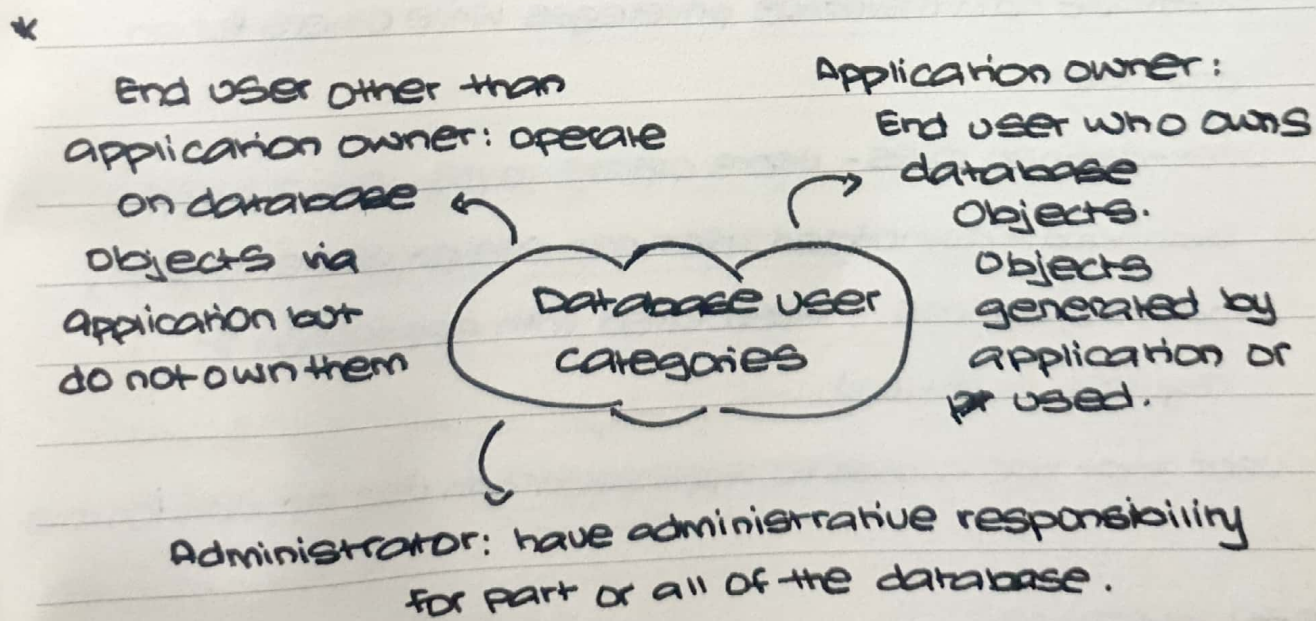 *
End user other than
application owner: operate
on database
objects via
application but
do not own them
Application owner:
End user who owns
database
objects.
objects
generated by
application or
used.
Database user
categories
Administrator: have administrative responsibility
for part or all of the database.